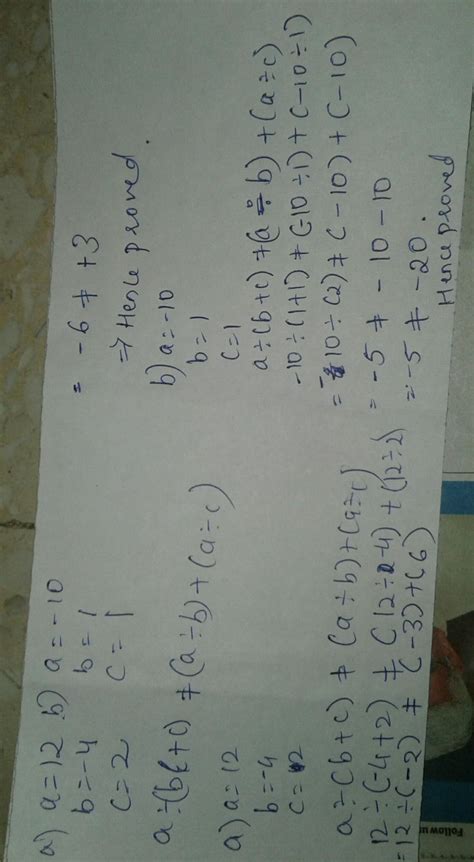 a) a=12 b) a=-10
b=-4 b=1
c=2 c=1
a÷(b+c) ≠ (a÷b)+(a÷c)
a) a=12
b=-4
c=2
a÷(b+c) ≠ (a÷b)+(a÷c)
12÷(-4+2) ≠ (12÷-4)+(12÷2)
=12÷(-2) ≠ (-3)+(6)
= -6 ≠ +3
⇒ Hence proved.
b) a=-10
b=1
c=1
a÷(b+c) ≠ (a÷b)+(a÷c)
-10÷(1+1) ≠ (-10÷1)+(-10÷1)
= -10÷(2) ≠ (-10)+(-10)
= -5 ≠ -10-10
= -5 ≠ -20.
Hence proved
Follow ur